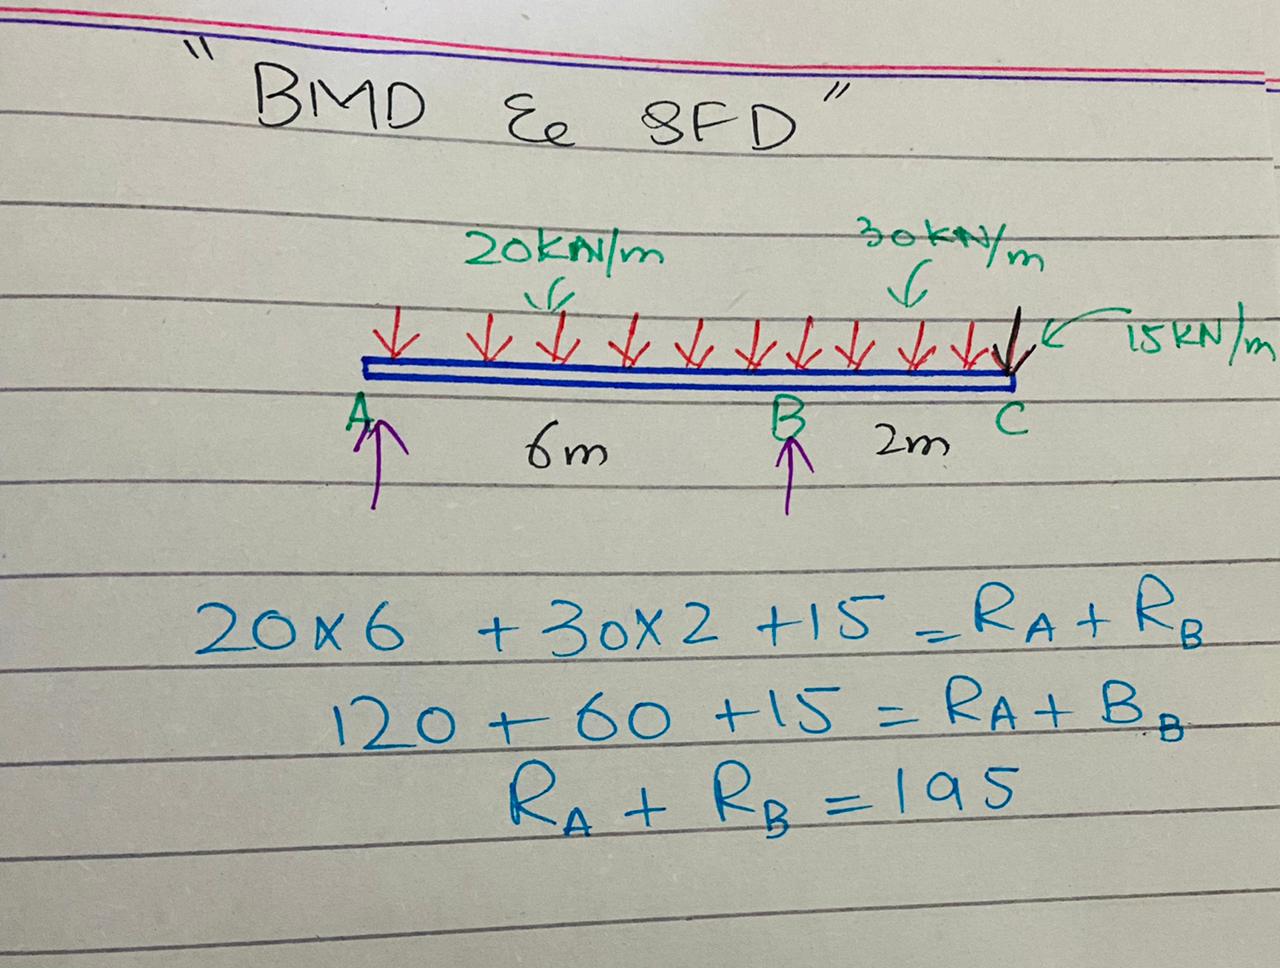 "BMD & SFD"
20kN/m
30kN/m
15KN/m
A
B
C
6m
2m
20×6 + 30×2 + 15 = RA + RB
120 + 60 + 15 = RA + BB
RA + RB = 195